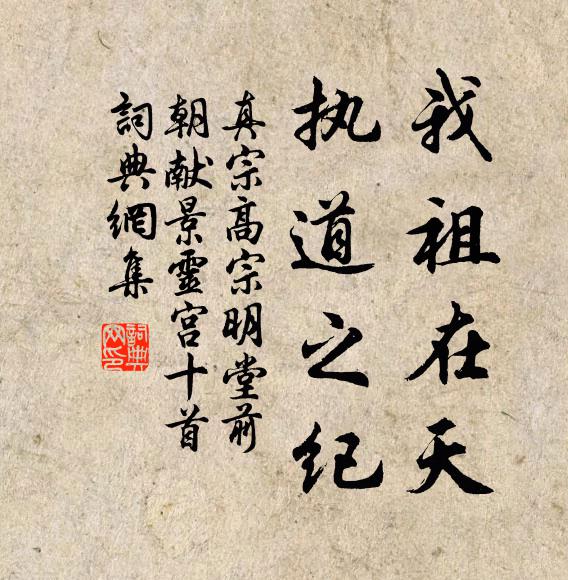 我祖在天
执道之纪
真宗高宗明堂前
朝献景靈宫十首
詞典網集